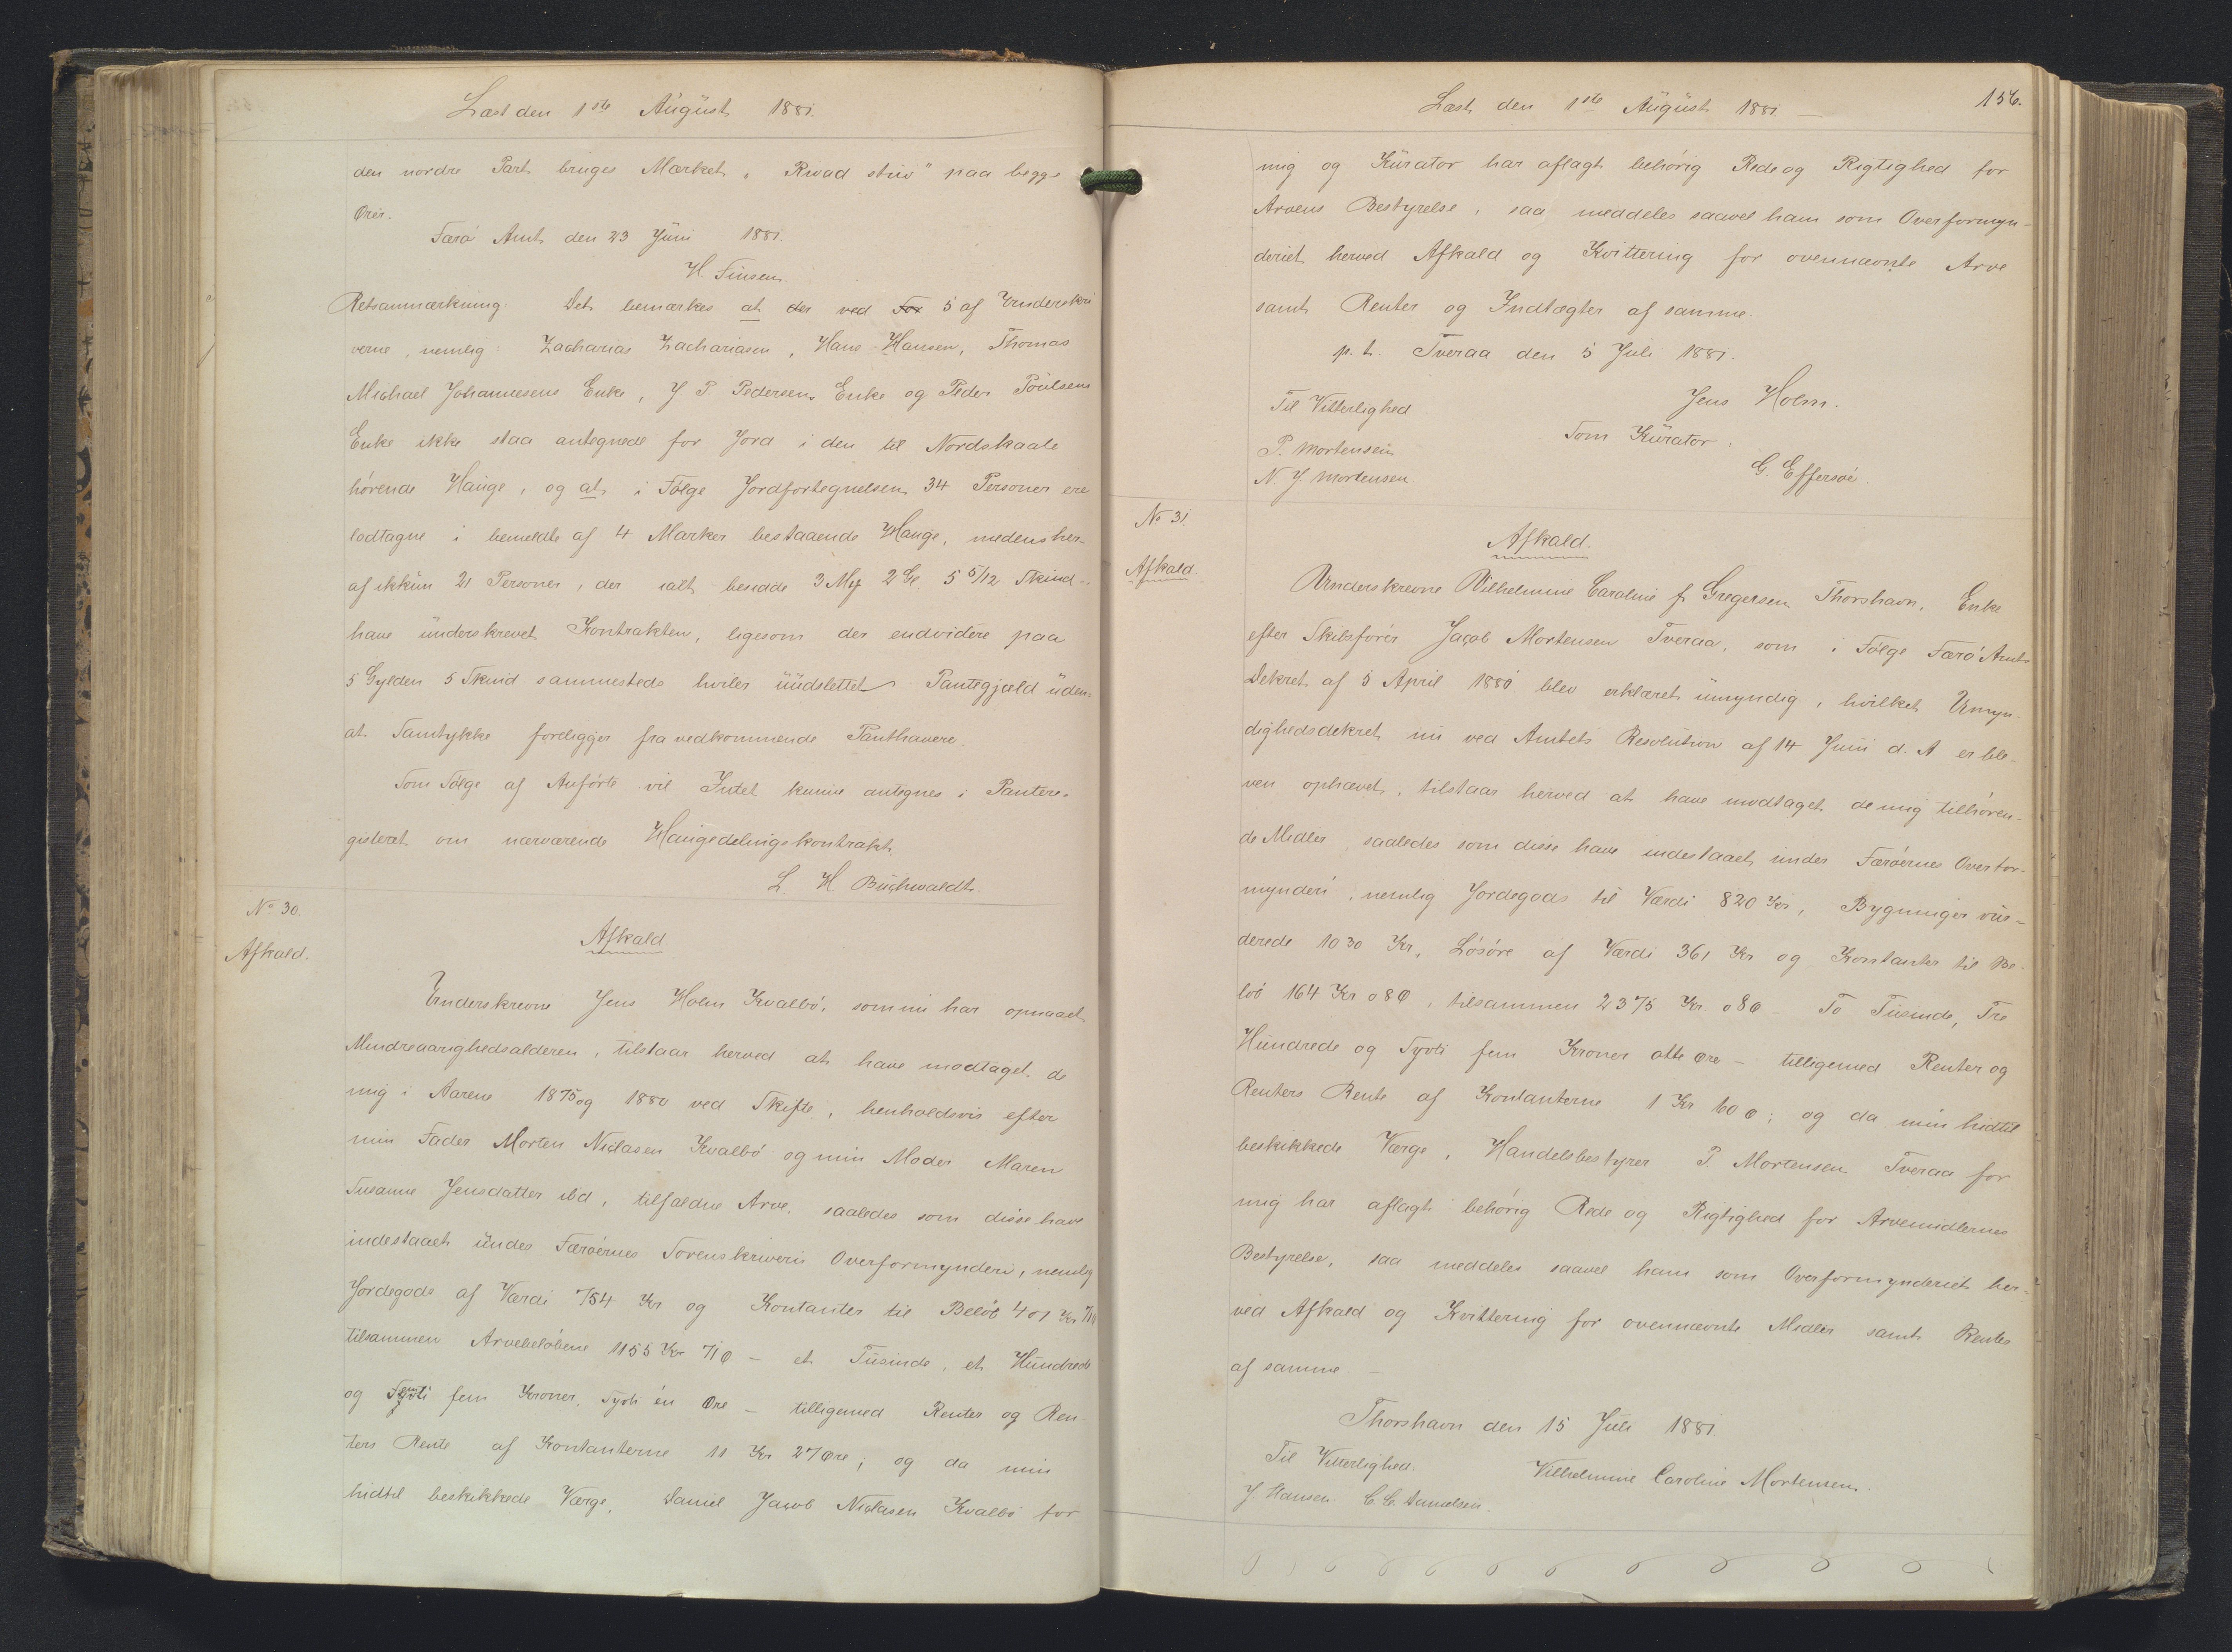 Læst den 1ste August 1881.
den nordre Part bruges Mærket „Rivad stuv" paa begge
Ører.
Færø Amt den 23 Juni 1881.
H. Finsen.
Retsanmærkning: Det bemærkes at der ved For 5 af Underskri
verne, nemlig: Zacharias Zachariasen, Hans Hansen, Thomas
Michael Johannesens Enke, J P. Pedersens Enke og Peder Poulsens
Enke ikke staa antegnede for Jord i den til Nordskaale
hørende Hauge, og at i Følge Jordfortegnelsen 34 Personer ere
lodtagne i bemeldte af 4 Marker bestaaende Hauge, medens her-
af ikkun 21 Personer, der ialt besidde 3 Mk 2 Gl. 5 5/12 Skind-
have underskrevet Kontrakten, ligesom der endvidere paa
5 Gylden 5 Skind sammesteds hviler uudslettet Pantegjæld uden
at Samtykke foreligger fra vedkommende Panthavere.
Som Følge af Anførte vil Intet kunne antegnes i Pantere-
gisteret om nærværende Haugedelingskontrakt.
L. H. Buchwaldt.
No 30.
Afkald.
Afkald
Underskrevne Jens Holm Kvalbø, som nu har opnaaet
Mindreaarighedsalderen, tilstaar herved at have modtaget de
mig i Aarene 1875 og 1880 ved Skifte, henholdsvis efter
min Fader Morten Niclasen Kvalbø og min Moder Maren
Susanne Jensdatter ibd, tilfaldne Arve, saaledes som disse have
indestaaet under Færøernes Sorenskriveris Overformynderi, nemlig
Jordegods af Værdi 754 Kr og Kontanter til Beløb 401 Kr 71 Ø
tilsammen Arvebeløbene 1155 Kr 71 Ø — et Tusinde, et Hundrede
og femti fem Kroner, Syvti én Øre — tilligemed Renter og Ren
ters Rente af Kontanterne 11 Kr 27 Øre; og da min
hidtil beskikkede Værge, Daniel Jacob Niclasen Kvalbø for
Læst den 1ste August 1881. —
156.
mig og Kurator har aflagt behørig Rede og Rigtighed for
Arvens Bestyrelse, saa meddeles saavel ham som Overformyn-
deriet herved Afkald og Kvittering for ovennævnte Arve
samt Renter og Indtægter af samme.
p. t. Tveraa den 5 Juli 1881.
Jens Holm.
Til Vitterlighed
Som Kurator:
P. Mortensen
G. Effersøe.
N. J. Mortensen.
No 31.
Afkald
Afkald.
Underskrevne Vilhelmine Caroline f. Gregersen Thorshavn, Enke
efter Skibsfører Jacob Mortensen Tveraa, som i Følge Færø Amts
Dekret af 5 April 1880 blev erklæret umyndig, hvilket Umyn-
dighedsdekret nu ved Amtets Resolution af 14 Juni d. A er ble-
ven ophævet, tilstaar herved at have modtaget de mig tilhøren-
de Midler saaledes som disse have indestaaet under Færøernes Overfor-
mynderi, nemlig Jordegods til Værdi 820 Kr, Bygninger vur-
derede 1030 Kr, Løsøre af Værdi 361 Kr og Kontanter til Be-
løb 164 Kr 08 Ø, tilsammen 2375 Kr 08 Ø — To Tusinde, Tre
Hundrede og Syvti fem Kroner otte Øre — tilligemed Renter og
Renters Rente af Kontanterne 1 Kr 60 Ø; og da min hidtil
beskikkede Værge, Handelsbestyrer P. Mortensen Tveraa for
mig har aflagt behørig Rede og Rigtighed for Arvemidlernes
Bestyrelse, saa meddeles saavel ham som Overformynderiet her-
ved Afkald og Kvittering for ovennævnte Midler samt Renter
af samme —
Thorshavn den 15 Juli 1881.
Til Vitterlighed.
Vilhelmine Caroline Mortensen.
J. Hansen C. C. Danielsen.